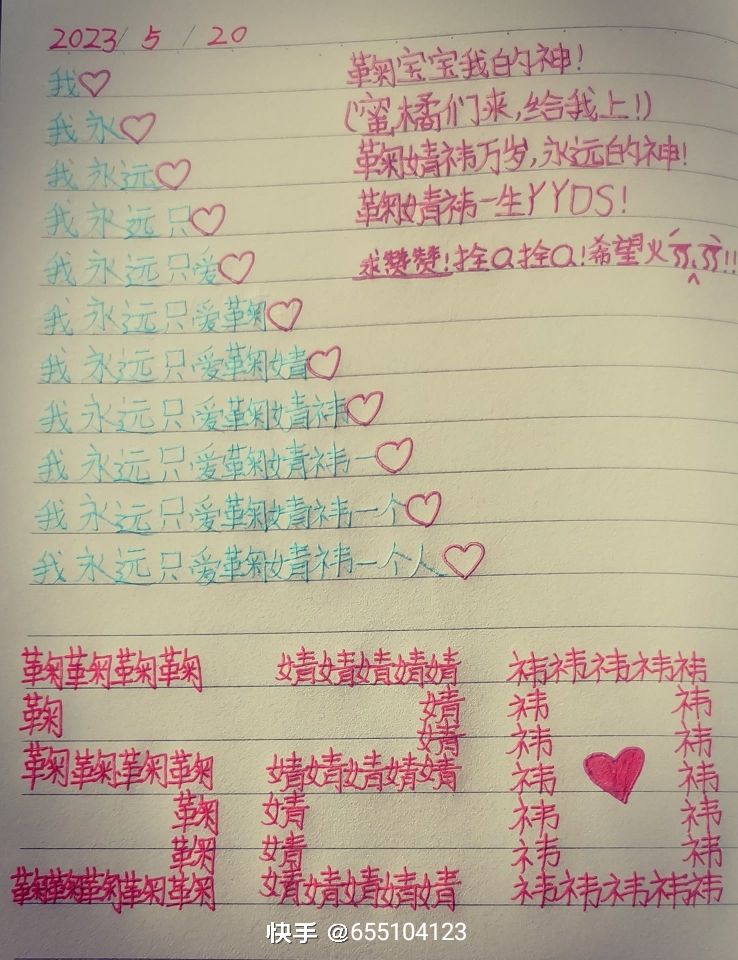 2023/5/20
我♡
我永♡
我永远♡
我永远只♡
我永远只爱♡
我永远只爱鞠♡
我永远只爱鞠婧♡
我永远只爱鞠婧祎♡
我永远只爱鞠婧祎一♡
我永远只爱鞠婧祎一个♡
我永远只爱鞠婧祎一个人♡
鞠宝宝我的神!
(蜜橘们来,给我上!)
鞠婧祎万岁,永远的神!
鞠婧祎一生YYDS!
求赞赞!拴Q拴Q!希望火
鞠鞠鞠鞠 婧婧婧婧婧 祎祎祎祎祎
鞠 婧 祎 祎
婧 祎 祎
鞠鞠鞠鞠 婧婧婧婧婧 祎 祎
鞠 婧 祎 祎
鞠 婧 祎 祎
鞠鞠鞠鞠鞠 婧婧婧婧婧 祎祎祎祎祎
快手 @655104123